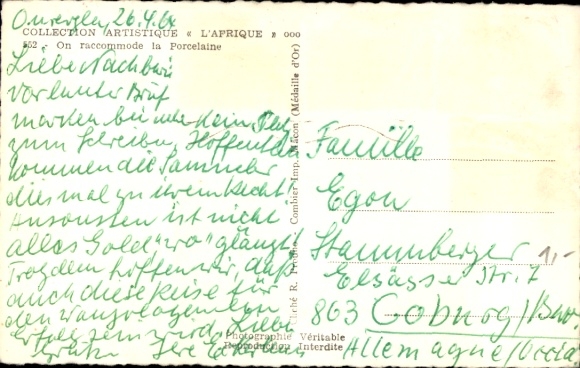 26.4.
COLLECTION ARTISTIQUE « L'AFRIQUE » 000
552 - On raccommode la Porcelaine
Liebe Nachbarn
vor lauter Brief
marken kein Platz
zum Schreiben. Hoffentlich
kommen die Sammler
diesmal zu ihrem Recht!
Ansonsten ist nicht
alles Gold "wo" glänzt!
Trotzdem hoffen wir, daß
auch diese Reise für
den
Erfolg sein wird. Liebe
Ihre
Cliché R. Combier Imp. Mâcon (Médaille d'Or)
Photographie Véritable
Reproduction Interdite
Familie
Egon
Stammberger
Elsässer Str. 7
1,-
863 Coburg/
Allemagne/Occid